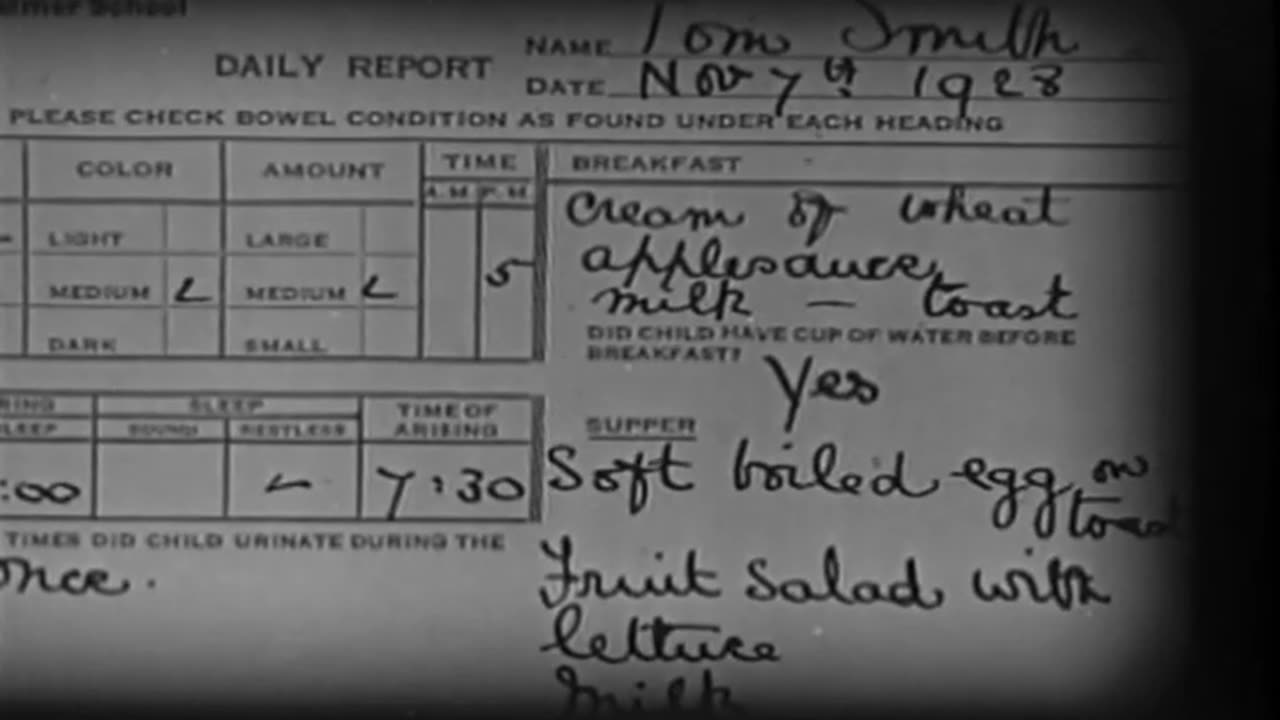 School
NAME Tom Smith
DAILY REPORT
DATE Nov 7th 1928
PLEASE CHECK BOWEL CONDITION AS FOUND UNDER EACH HEADING
COLOR AMOUNT TIME BREAKFAST
A.M. P.M.
cream of wheat
LIGHT LARGE
applesauce
MEDIUM MEDIUM 5
milk — toast
DARK SMALL
DID CHILD HAVE CUP OF WATER BEFORE
BREAKFAST?
Yes
SLEEP TIME OF
SOUND RESTLESS ARISING
SUPPER
:00 7:30
Soft boiled egg on
toast
TIMES DID CHILD URINATE DURING THE
once.
Fruit Salad with
lettuce
milk